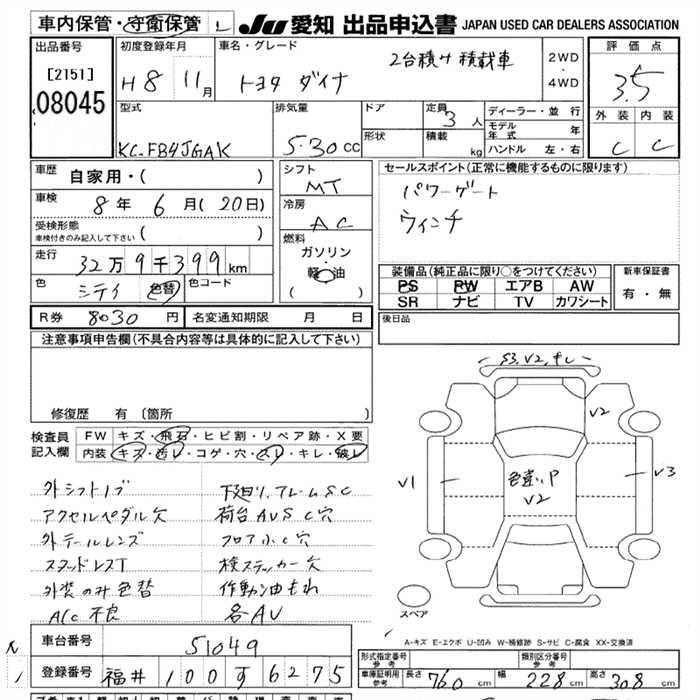 車内保管・守衛保管 L
JU 愛知 出品申込書 JAPAN USED CAR DEALERS ASSOCIATION
出品番号
[2151]
08045
初度登録年月
H8 11月
車名・グレード
トヨタ ダイナ 2台積み 積載車
2WD
・
4WD
評価点
3.5
外装 内装
C C
型式
KC-FB4JGAK
排気量
5.30 cc
ドア
形状
定員
3人
積載
kg
ディーラー・並行
モデル年式 年
ハンドル 左・右
車歴
自家用・( )
車検
8年 6月(20日)
受検形態
車検付きのみ記入して下さい ( )
走行
32万9千399km
色
色替
色コード
シフト
MT
冷房
AC
燃料
ガソリン
・
軽油
( )
セールスポイント(正常に機能するものに限ります)
パワーゲート
ウィンチ
装備品(純正品に限り○をつけてください)
PS PW エアB AW
SR ナビ TV カワシート
新車保証書
有・無
R券 8030円 名変通知期限 月 日
後日品
注意事項申告欄(不具合内容等は具体的に記入して下さい)
修復歴 有 〔箇所 〕
検査員
記入欄
FW キズ・飛石・ヒビ割・リペア跡・X要
内装 キズ・汚レ・コゲ・穴・スレ・キレ・破レ
外シフトノブ 下廻り、フレームSC
アクセルペダル欠 荷台AVS C穴
外テールレンズ フロア小C穴
スタッドレスT 検ステッカー欠
外装のみ色替 作動油もれ
A/C不良 各AV
S3,V2,
V2
V1
色違いP
V2
V3
スペア
A-キズ E-エクボ U-凹み W-補修跡 S-サビ C-腐食 XX-交換済
車台番号 51049
登録番号 福井 100 す 6275
形式指定番号
参考
類別区分番号
参考
車庫証明用
参考
長さ 760cm 幅 228cm 高さ 308cm